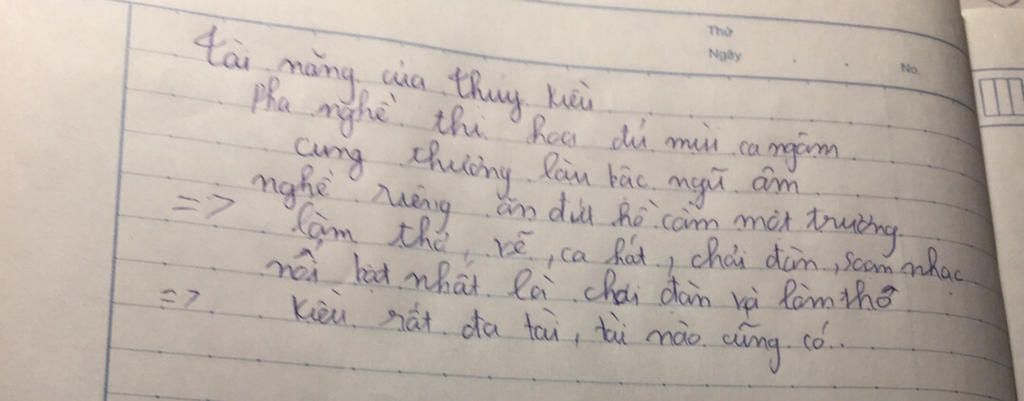 Thứ
Ngày
No.
tài năng của thuý kiều
Pha nghề thi hoạ đủ mùi ca ngâm
cung thương làu bậc ngũ âm
nghề riêng ăn đứt hồ cầm một trương
=> làm thơ, vẽ, ca hát, chơi đàn, soạn nhạc
nổi bật nhất là chơi đàn và làm thơ
=> kiều rất đa tài, tài nào cũng có.